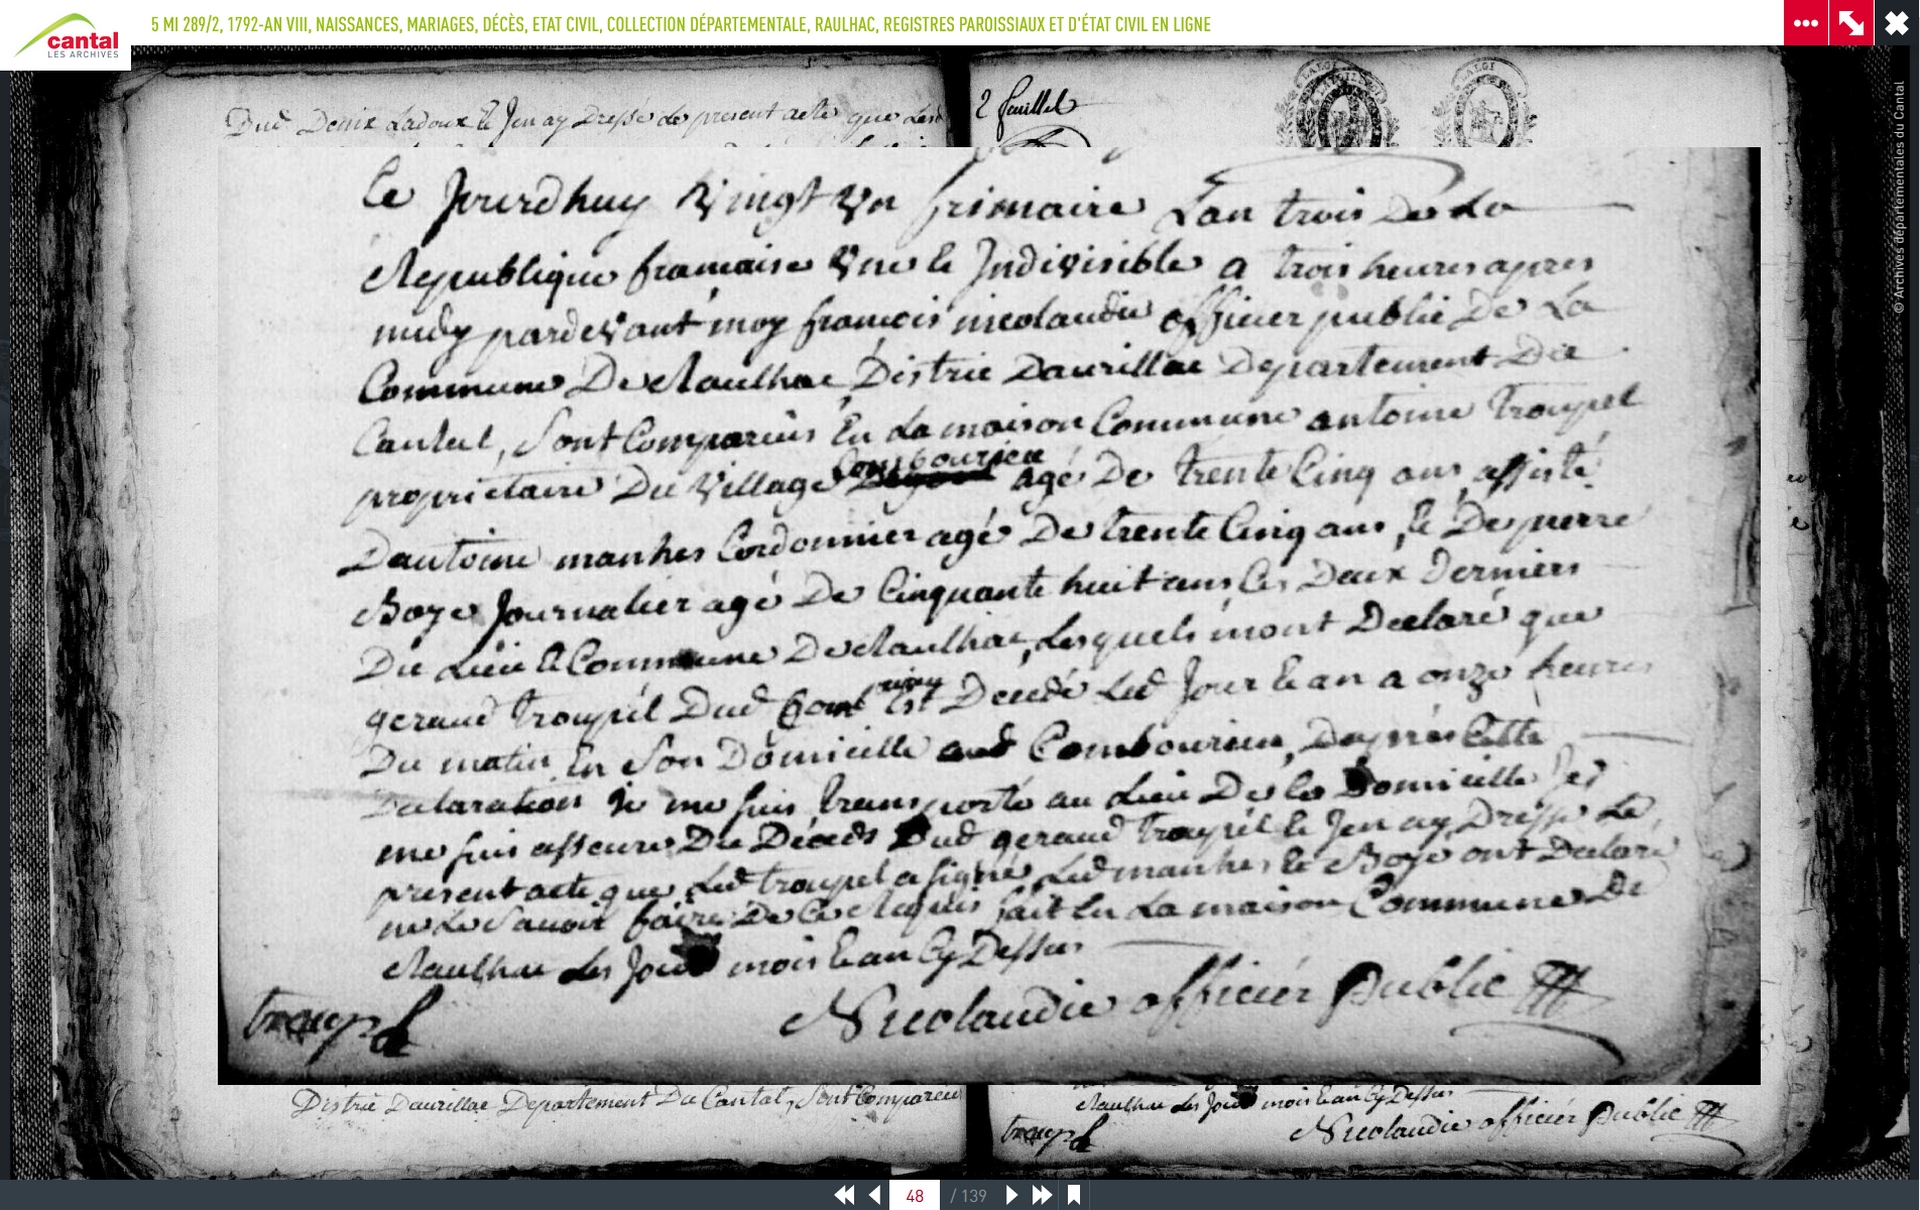 cantal
LES ARCHIVES
5 MI 289/2, 1792-AN VIII, NAISSANCES, MARIAGES, DÉCÈS, ETAT CIVIL, COLLECTION DÉPARTEMENTALE, RAULHAC, REGISTRES PAROISSIAUX ET D'ÉTAT CIVIL EN LIGNE
© Archives départementales du Cantal
Dud Denix Ladoux & Jen ay Dressé le present acte que Lesd
2 feuillet
LA LOI
LA LOI
Ce Jourdhuy Vingt Vn frimaire Lan trois De La
Republique francaise Vne & Indivisible a trois heures apres
midy pardevant moy francois nicolaudie officier public De La
Commune De Raulhac Distric Daurillac Departement Du
Cantal, Sont Comparüs En La maison Commune antoine Troupel
proprietaire Du Village Combourieu agé De trente Cinq ans assisté
Dantoine manhes Cordonnier agé De trente Cinq ans, & De pierre
Boye Journalier agé De Cinquante huit ans Ces Deux Derniers
Du Lieu & Commune De Raulhac, Lesquels mont Declaré que
geraud Troupel Dud Est Decedé Led Jour & an a onze heures
Du matin En Son Domicille aud Combourieu, Daprés Cette
Declaration Je me suis transporté au Lieu De Ce Domicille Jes
me suis asseuré Du Décéds Dud geraud Troupel & Jen ay Dressé Le
present acte que Led troupel a signé Led manhes & Boye ont Declaré
ne Le Savoir faire De Ce Requis fait En La maison Commune De
Raulhac Les Jour mois & an Cy Dessus
troupel
Nicolaudie officiér Public
Distric Daurillac Departement Du Cantal, Sont Compareu
Raulhac Les Jour mois & an Cy Dessus
troupel
Nicolaudie officiér Public
48 / 139